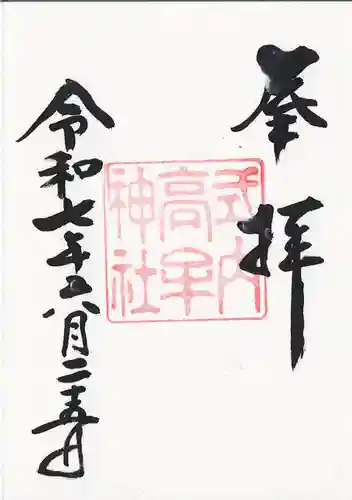 奉拝
式内
高牟
神社
令和七年八月二十五日